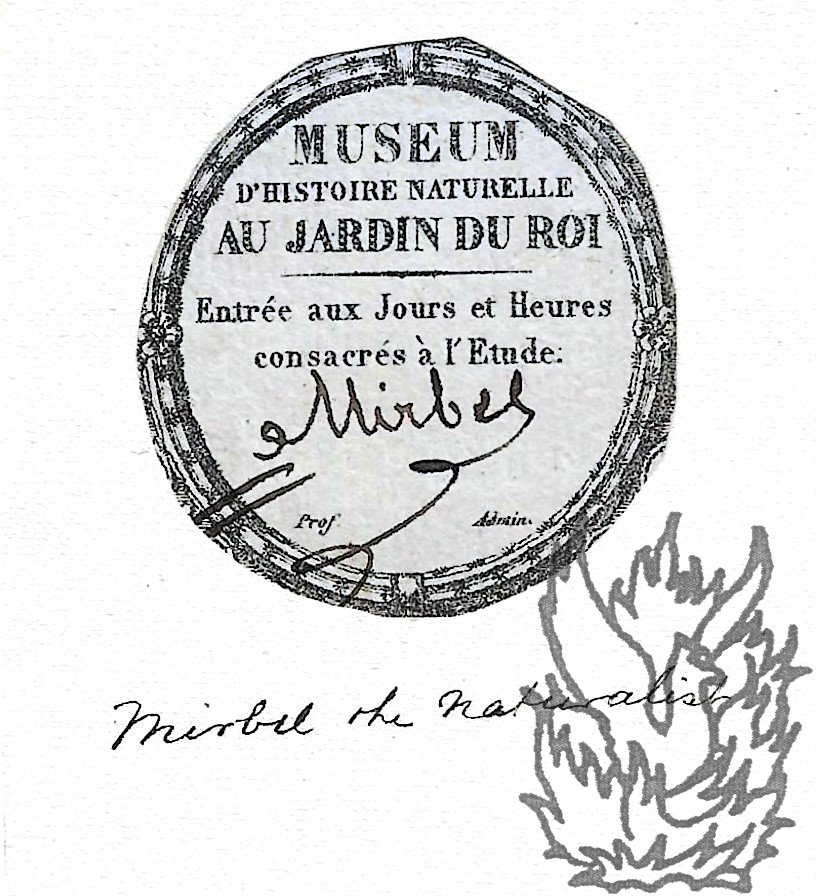 MUSEUM
D'HISTOIRE NATURELLE
AU JARDIN DU ROI
Entrée aux Jours et Heures
consacrés à l'Etude:
Mirbel
Prof. Admin.
Mirbel the Naturalist